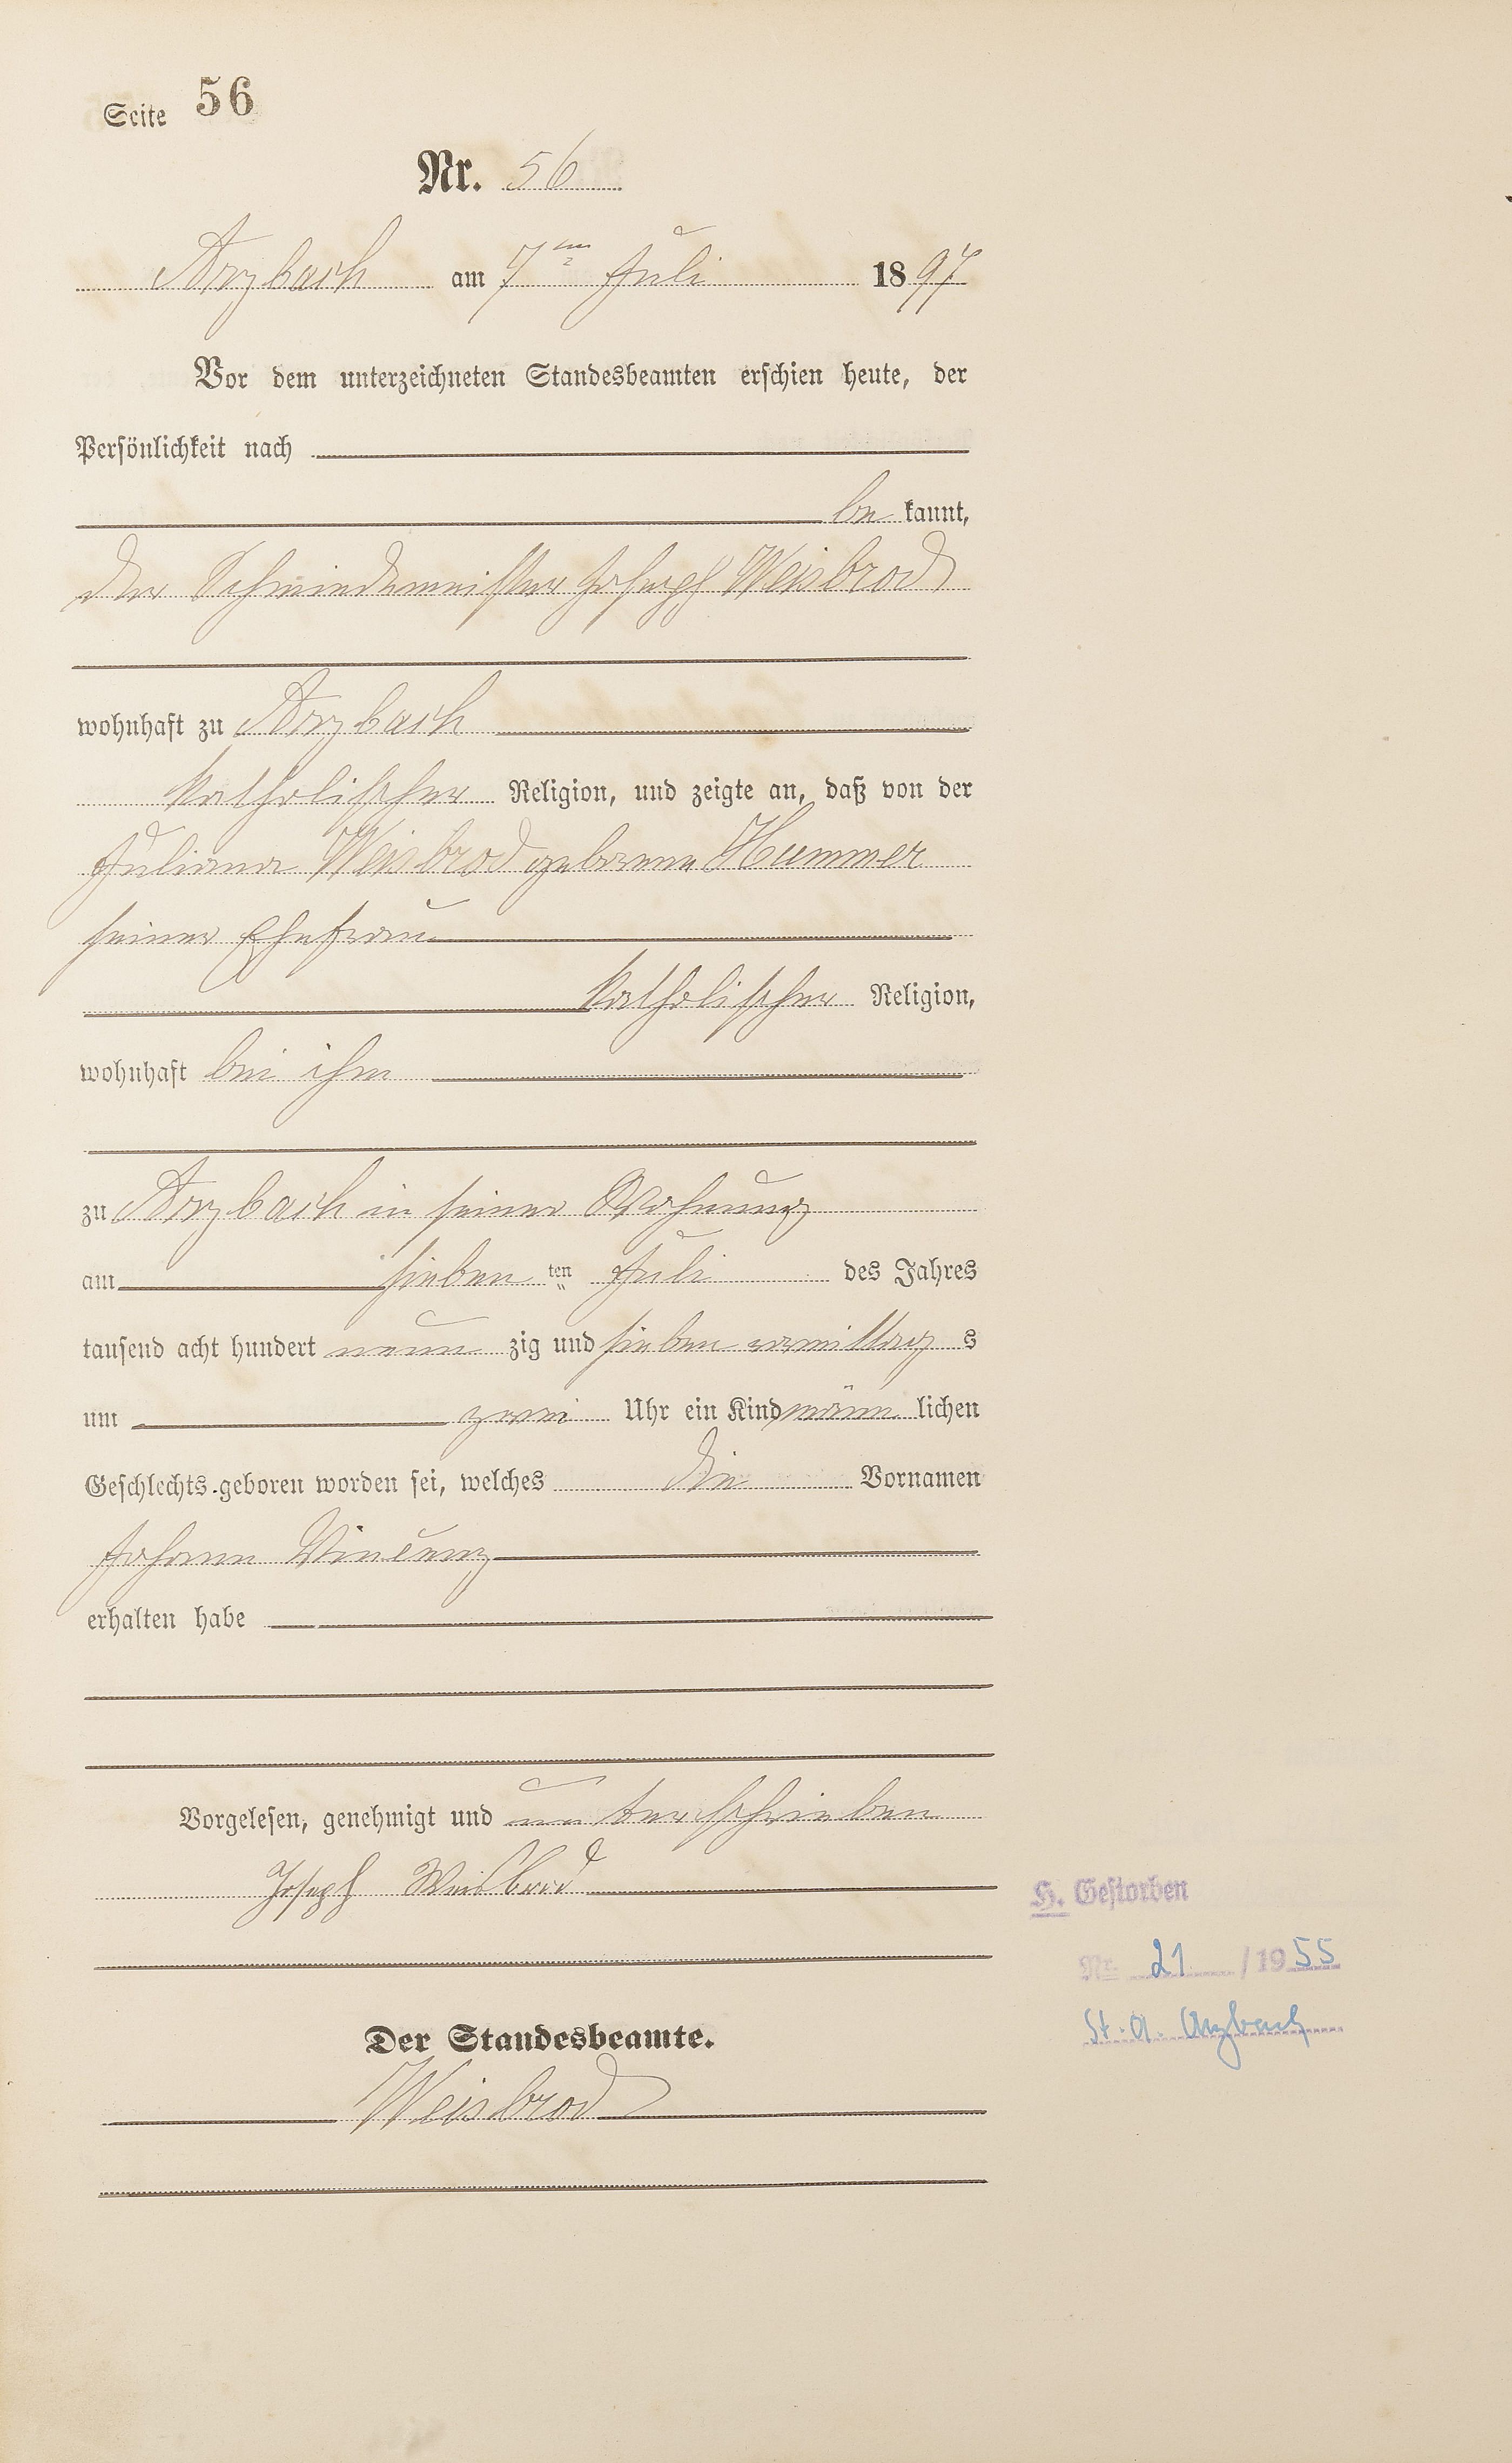 Seite 56
Nr. 56
Arzbach am 7ten Juli 1897
Vor dem unterzeichneten Standesbeamten erschien heute, der
Persönlichkeit nach
be kannt,
der Schmiedemeister Joseph Weisbrod
wohnhaft zu Arzbach
katholischer Religion, und zeigte an, daß von der
Juliana Weisbrod geborene Hummer
seiner Ehefrau
katholischer Religion,
wohnhaft bei ihm
zu Arzbach in seiner Wohnung
am sieben ten Juli des Jahres
tausend acht hundert neun zig und sieben vormittag s
um zwei Uhr ein Kind männ lichen
Geschlechts geboren worden sei, welches die Vornamen
Johann Vincenz
erhalten habe
Vorgelesen, genehmigt und unterschrieben
Joseph Weisbrod
H. Gestorben
Nr. 21 / 1955
St. A. Arzbach
Der Standesbeamte.
Weisbrod